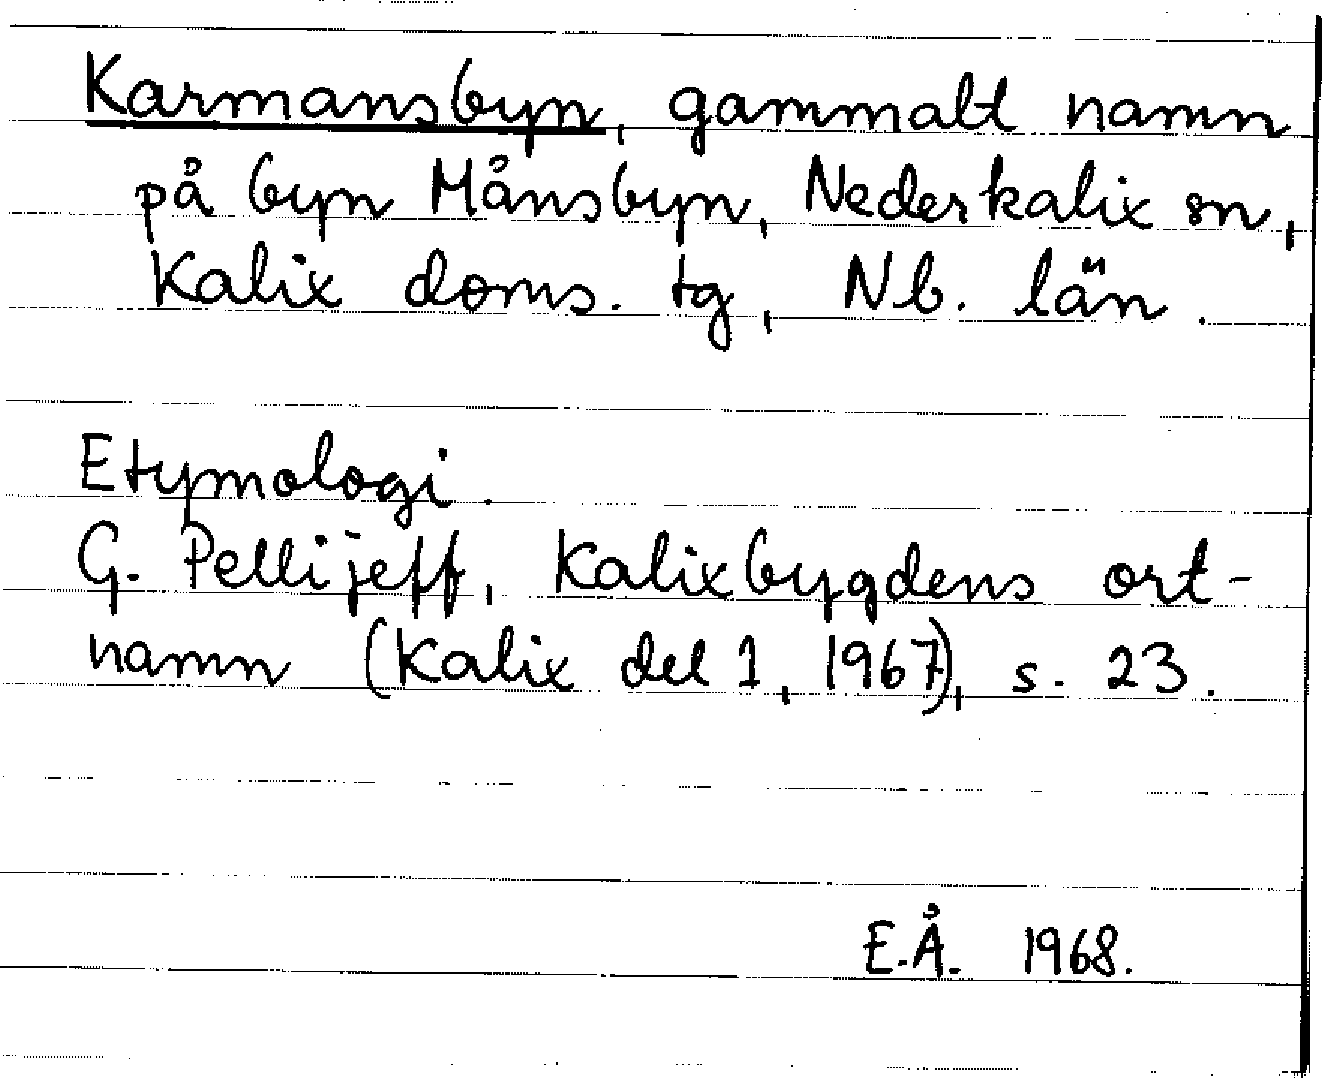 Karmansbyn, gammalt namn
på byn Månsbyn, Nederkalix sn,
Kalix doms. tg, Nb. län.
Etymologi.
G. Pellijeff, Kalixbygdens ort-
namn (Kalix del 1, 1967), s. 23.
E.Å. 1968.